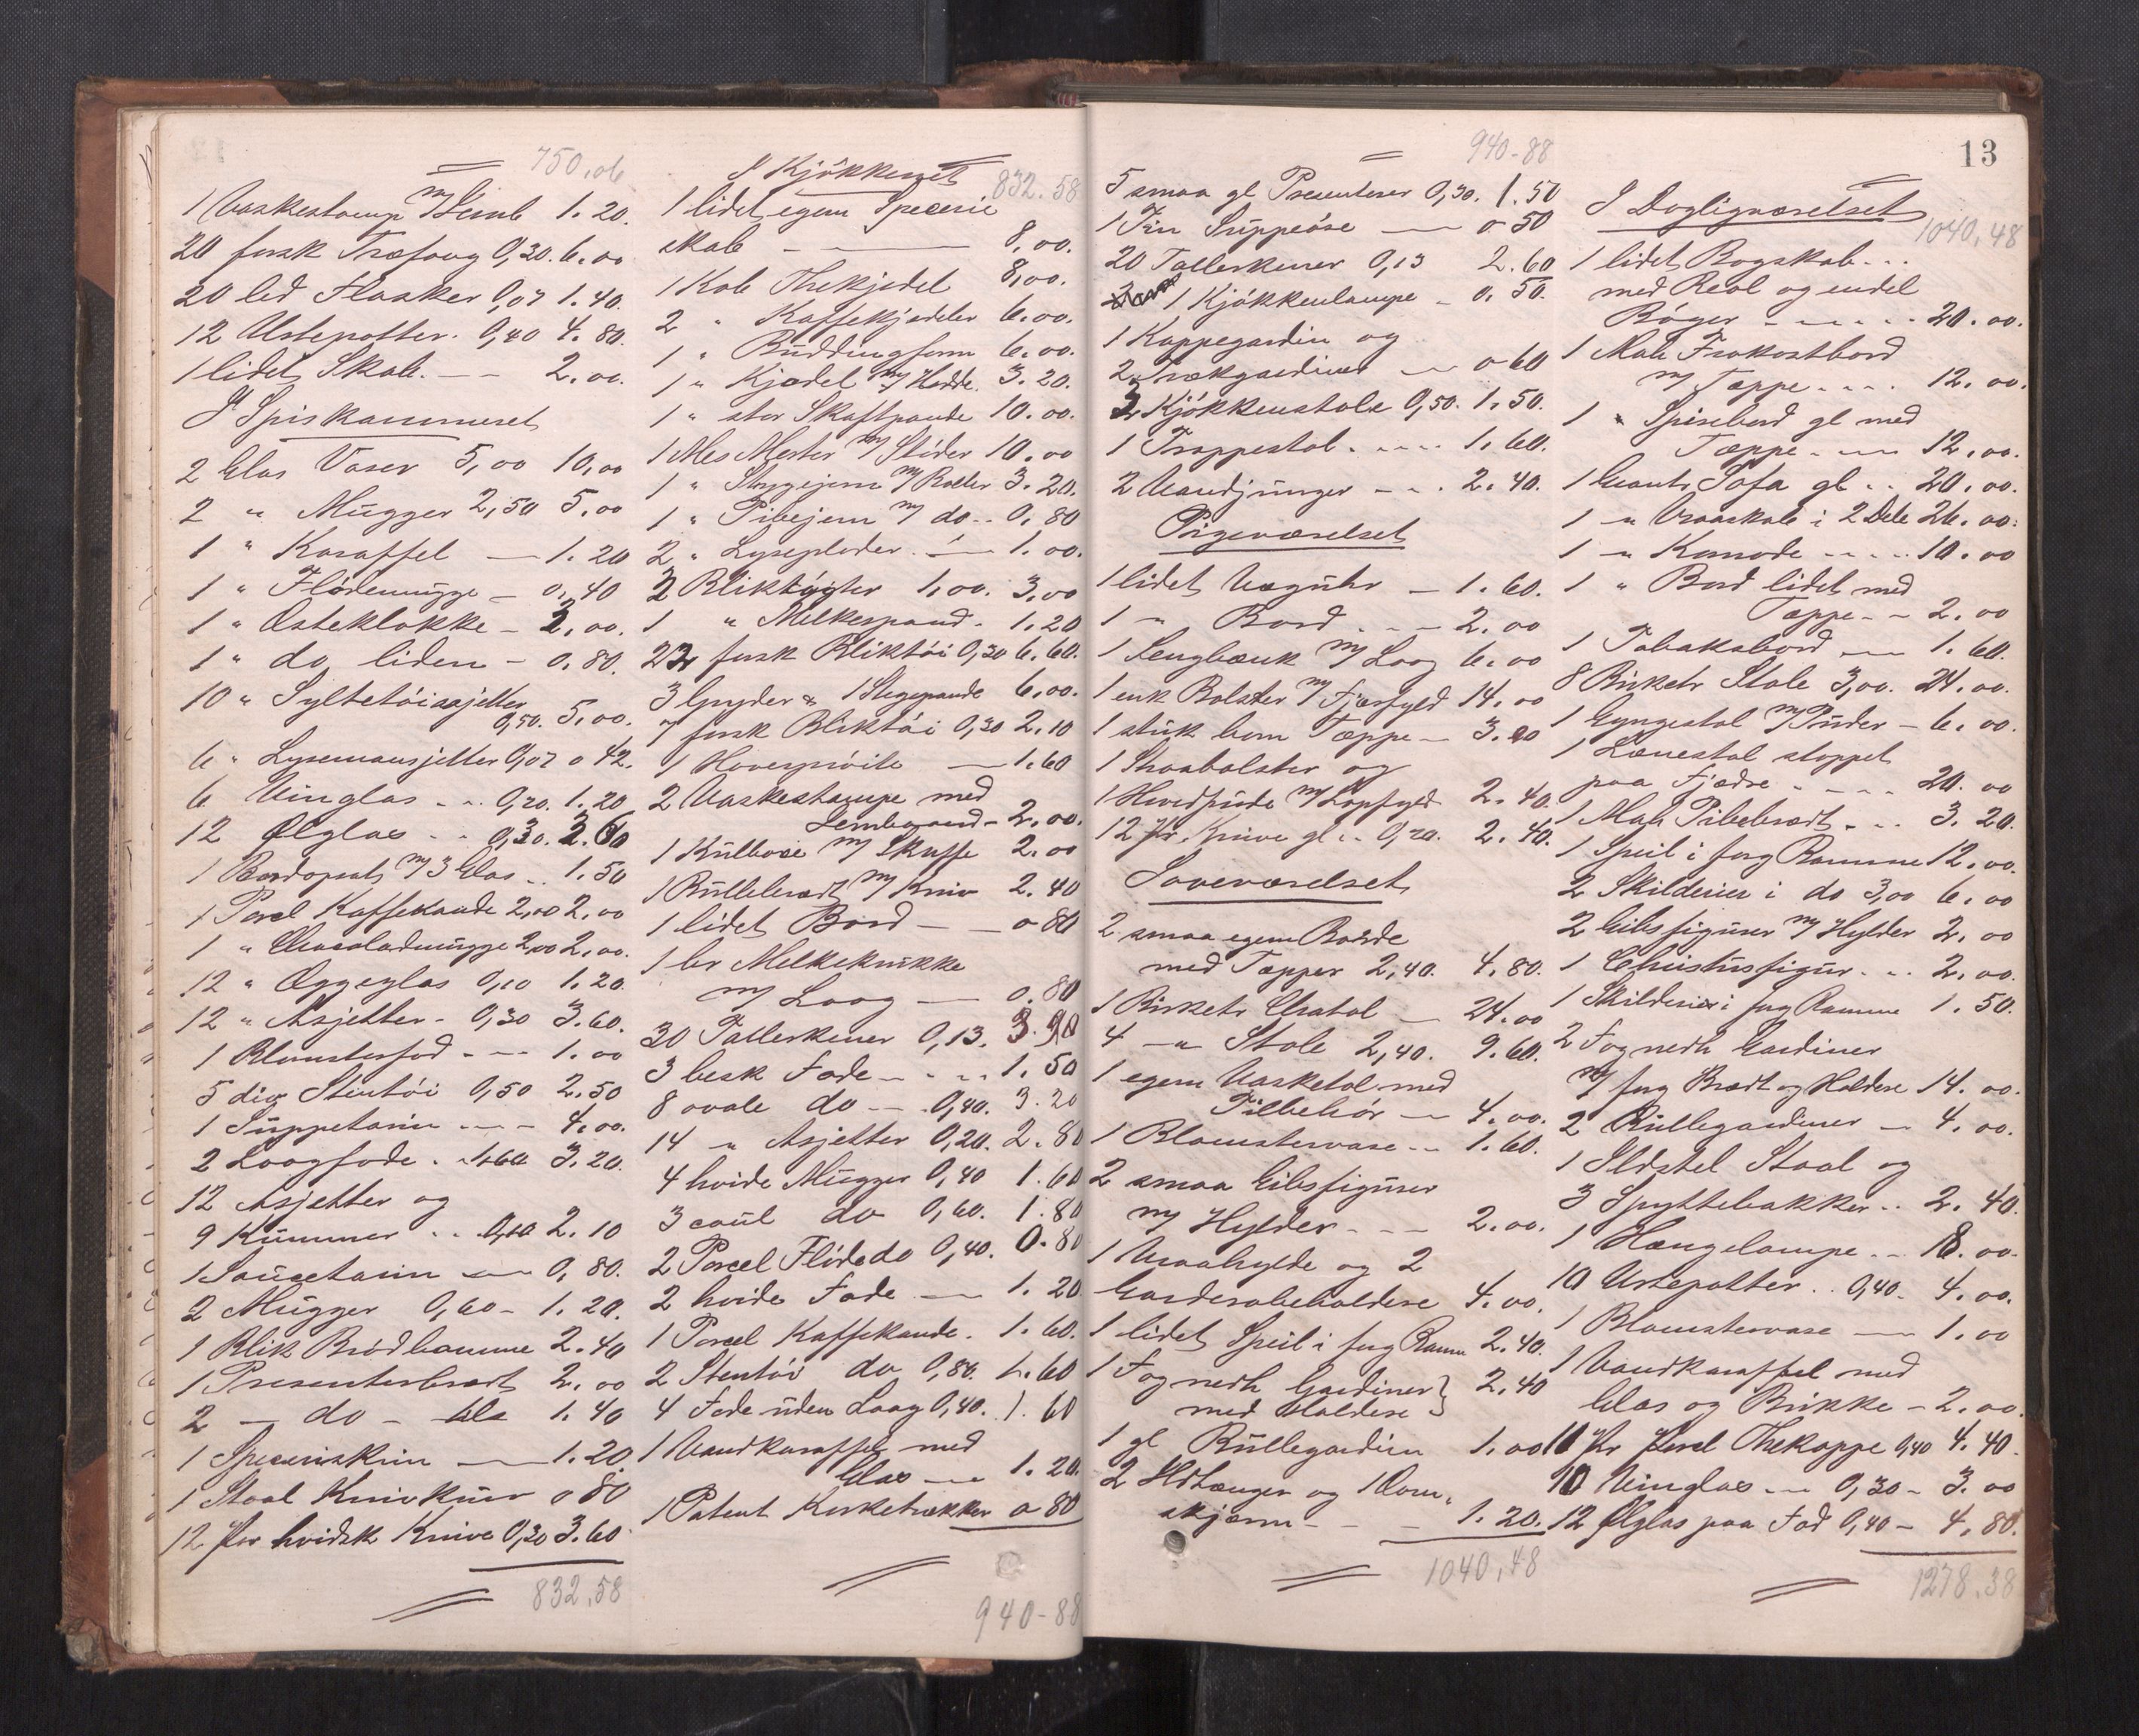 750,06
1 Vaskestamp m/ Limb 1.20.
20 forsk Træfang 0,30. 6.00
20 led Flasker 0,07 1.40.
12 Urtepotter. 0,40 4.80.
1 lidet Skab. - - 2.00.
I Spiskammeret
2 Glas Vaser 5,00 10,00
2 " Mugger 2,50 5,00
1 " Karaffel — 1.20
1 " Flödemugge - 0,40
1 " Osteklokke - 2,00.
1 " do liden - 0.80.
10 " Syltetöiasjetter
0,50. 5.00.
6 " Lysemansjetter 0,07 0 42.
6 Vinglas - .. 0,20. 1.20
12 Ølglas .. 0,30. 3.60
1 Bordopsats m/ 3 Glas .. 1.50
1 Porcel Kaffekande 2,00 2,00
1 " Chocolademugge 2,00 2,00.
12 " Æggeglas 0,10 1.20.
12 " Asjetter - 0,30 3.60.
1 Blomsterfad - - - 1.00
5 div Stentöi 0,50 2.50
1 Suppeterin - - - 4.00.
2 Laagfade . 1.60 3.20.
12 Asjetter og
9 Kummer .. 0,10 2.10
1 Sauceterin — 0,80.
2 Mugger 0,60 - 1.20.
1 Blik Brödbomme 2.40
1 Presenterbræt 2.00
2 — do - 1.40
1 Specerieskrin — 1.20.
1 Staal Knivkurv 0 80
12 Par hvidsk Knive 0,30 3.60
832,58
I Kjökkenet
832.58
1 lidet egem Specerie
skab — 8,00.
1 Kob Thekjedel 8,00.
2 " Kaffekjedeler 6.00.
1 " Buddingform 6.00.
1 " Kjedel m/ Hadde. 3.20.
1 " stor Skaftpande 10.00.
1 Mes Morter m/ Stöder 10.00
1 " Strygejern m/ Bolter 3.20.
1 " Pibejern m/ do .. 0.80
2 " Lyseplader. — 1.00.
3 Bliktögter 1,00. 3,00
1 " Melkespand - 1.20
22 forsk Bliktöi 0,30 6.60.
3 Gryder & 1 Stegepande 6,00.
7 forsk Bliktöi 0,30 2.10
1 — 1.60
2 Vaskestampe med
- 2.00.
1 Kulboxe m/ Skuffe 2.00
1 Rullebræt m/ Kniv 2.40
1 lidet Bord — - 0 80
1 br Melkekrukke
m/ Laag — 0.80
30 Tallerkener 0,13. 3.90
3 besk Fade - . .. 1.50
8 ovale do - - . 0,40. 3.20
14 " Asjetter 0,20. 2.80
4 hvide Mugger 0,40 1.60
3 coul do 0,60. 1.80
2 Porcel Flöde do 0,40. 0.80
2 hvide Fade — 1.20
1 Porcel Kaffekande. 1.60.
2 Stentöi do 0,80. 1.60
4 Fade uden Laag 0,40. 1.60
1 Vandkaraffel med
Glas — 1.20.
1 Patent Korketrækker 0 80
940-88
13
940-88
5 smaa gl Presenterer 0,30. 1.50
1 Tin Suppeöse — 0 50
20 Tallerkener 0,13 2.60
1 Kjökkenlampe - 0.50.
1 Kappegardin og
2 Trækgardiner — 0 60
3 Kjökkenstole 0,50. 1.50.
1 Trappestol. .... 1.60.
2 Vandjunger - - . 2.40.
Pigeværelset
1 lidet Væguhr — 1.60.
1 " Bord - - - 2.00
1 Sengbænk m/ Laag 6.00
1 enk Bolster m/ Fjærfyld 14.00
1 stuk bom Tæppe — 3.20
1 Straabolster og
1 Hovedpude m/ Lopfyld. 2.40.
12 Pr. Knive gl .. 0,20. 2.40.
Soveværelset
2 smaa egem Borde
med Tæpper 2,40. 4.80.
1 Birketr Chatol — 24.00
4 — " Stole 2,40. 9.60.
1 egem Vasketol med
Tilbehör — 4.00.
1 Blomstervase - - 1.60.
2 smaa Gibsfigurer
m/ Hylder - - - 2.00.
1 Vraahylde og 2
Garderobeholdere 4.00.
1 lidet Speil i forg Ramme 2.40.
1 Fag nedh Gardiner
med Holdere } 2.40
1 gl Rullegardin 1.00
2 Uhrhænger og 1 Ovn-
skjerm - - - 1.20.
1040,48
I Dagligværelset
1040,48
1 lidet Bogskab...
med Reol og endel
Böger - - - - - 20.00.
1 Mah Frokostbord
m/ Tæppe - - - . 12.00.
1 " Spisebord gl med
Tæppe - — 12.00.
1 Sofa gl .. 20.00.
1 — " Vraaskab i 2 Dele 26.00.
1 — " Komode - - .. 10.00
1 " Bord lidet med
Tæppe - - 2.00
1 Tobaksbord — 1.60.
8 Birketr Stole 3,00. 24.00.
1 Gyngestol m/ Puder - 6.00.
1 Lænestol stoppet
paa Fjædre - - - - 20.00
1 Mah Pibebræt - - . 3.20.
1 Speil i forg Ramme 12.00.
2 Skilderier i do 3,00 6.00
2 Gibsfigurer m/ Hylder 2.00
1 Christusfigur. .. 2.00.
1 Skilderi i forg Ramme 1.50.
2 Fag nedh Gardiner
m/ forg Bræt og Holdere 14.00.
2 Rullegardiner — 4.00.
1 Ildstel Staal og
3 Spyttebakker .. 2.40.
1 Hængelampe - - 18.00.
10 Urtepotter .. 0,40. 4.00.
1 Blomstervase — 1.00
1 Vandkaraffel med
Glas og Brikke - 2.00.
11 Pr Porcel Thekoppe 0,40 4.40.
10 Vinglas — 0,30 - 3.00
12 Ølglas paa Fod 0,40 - 4.80.
1278.38